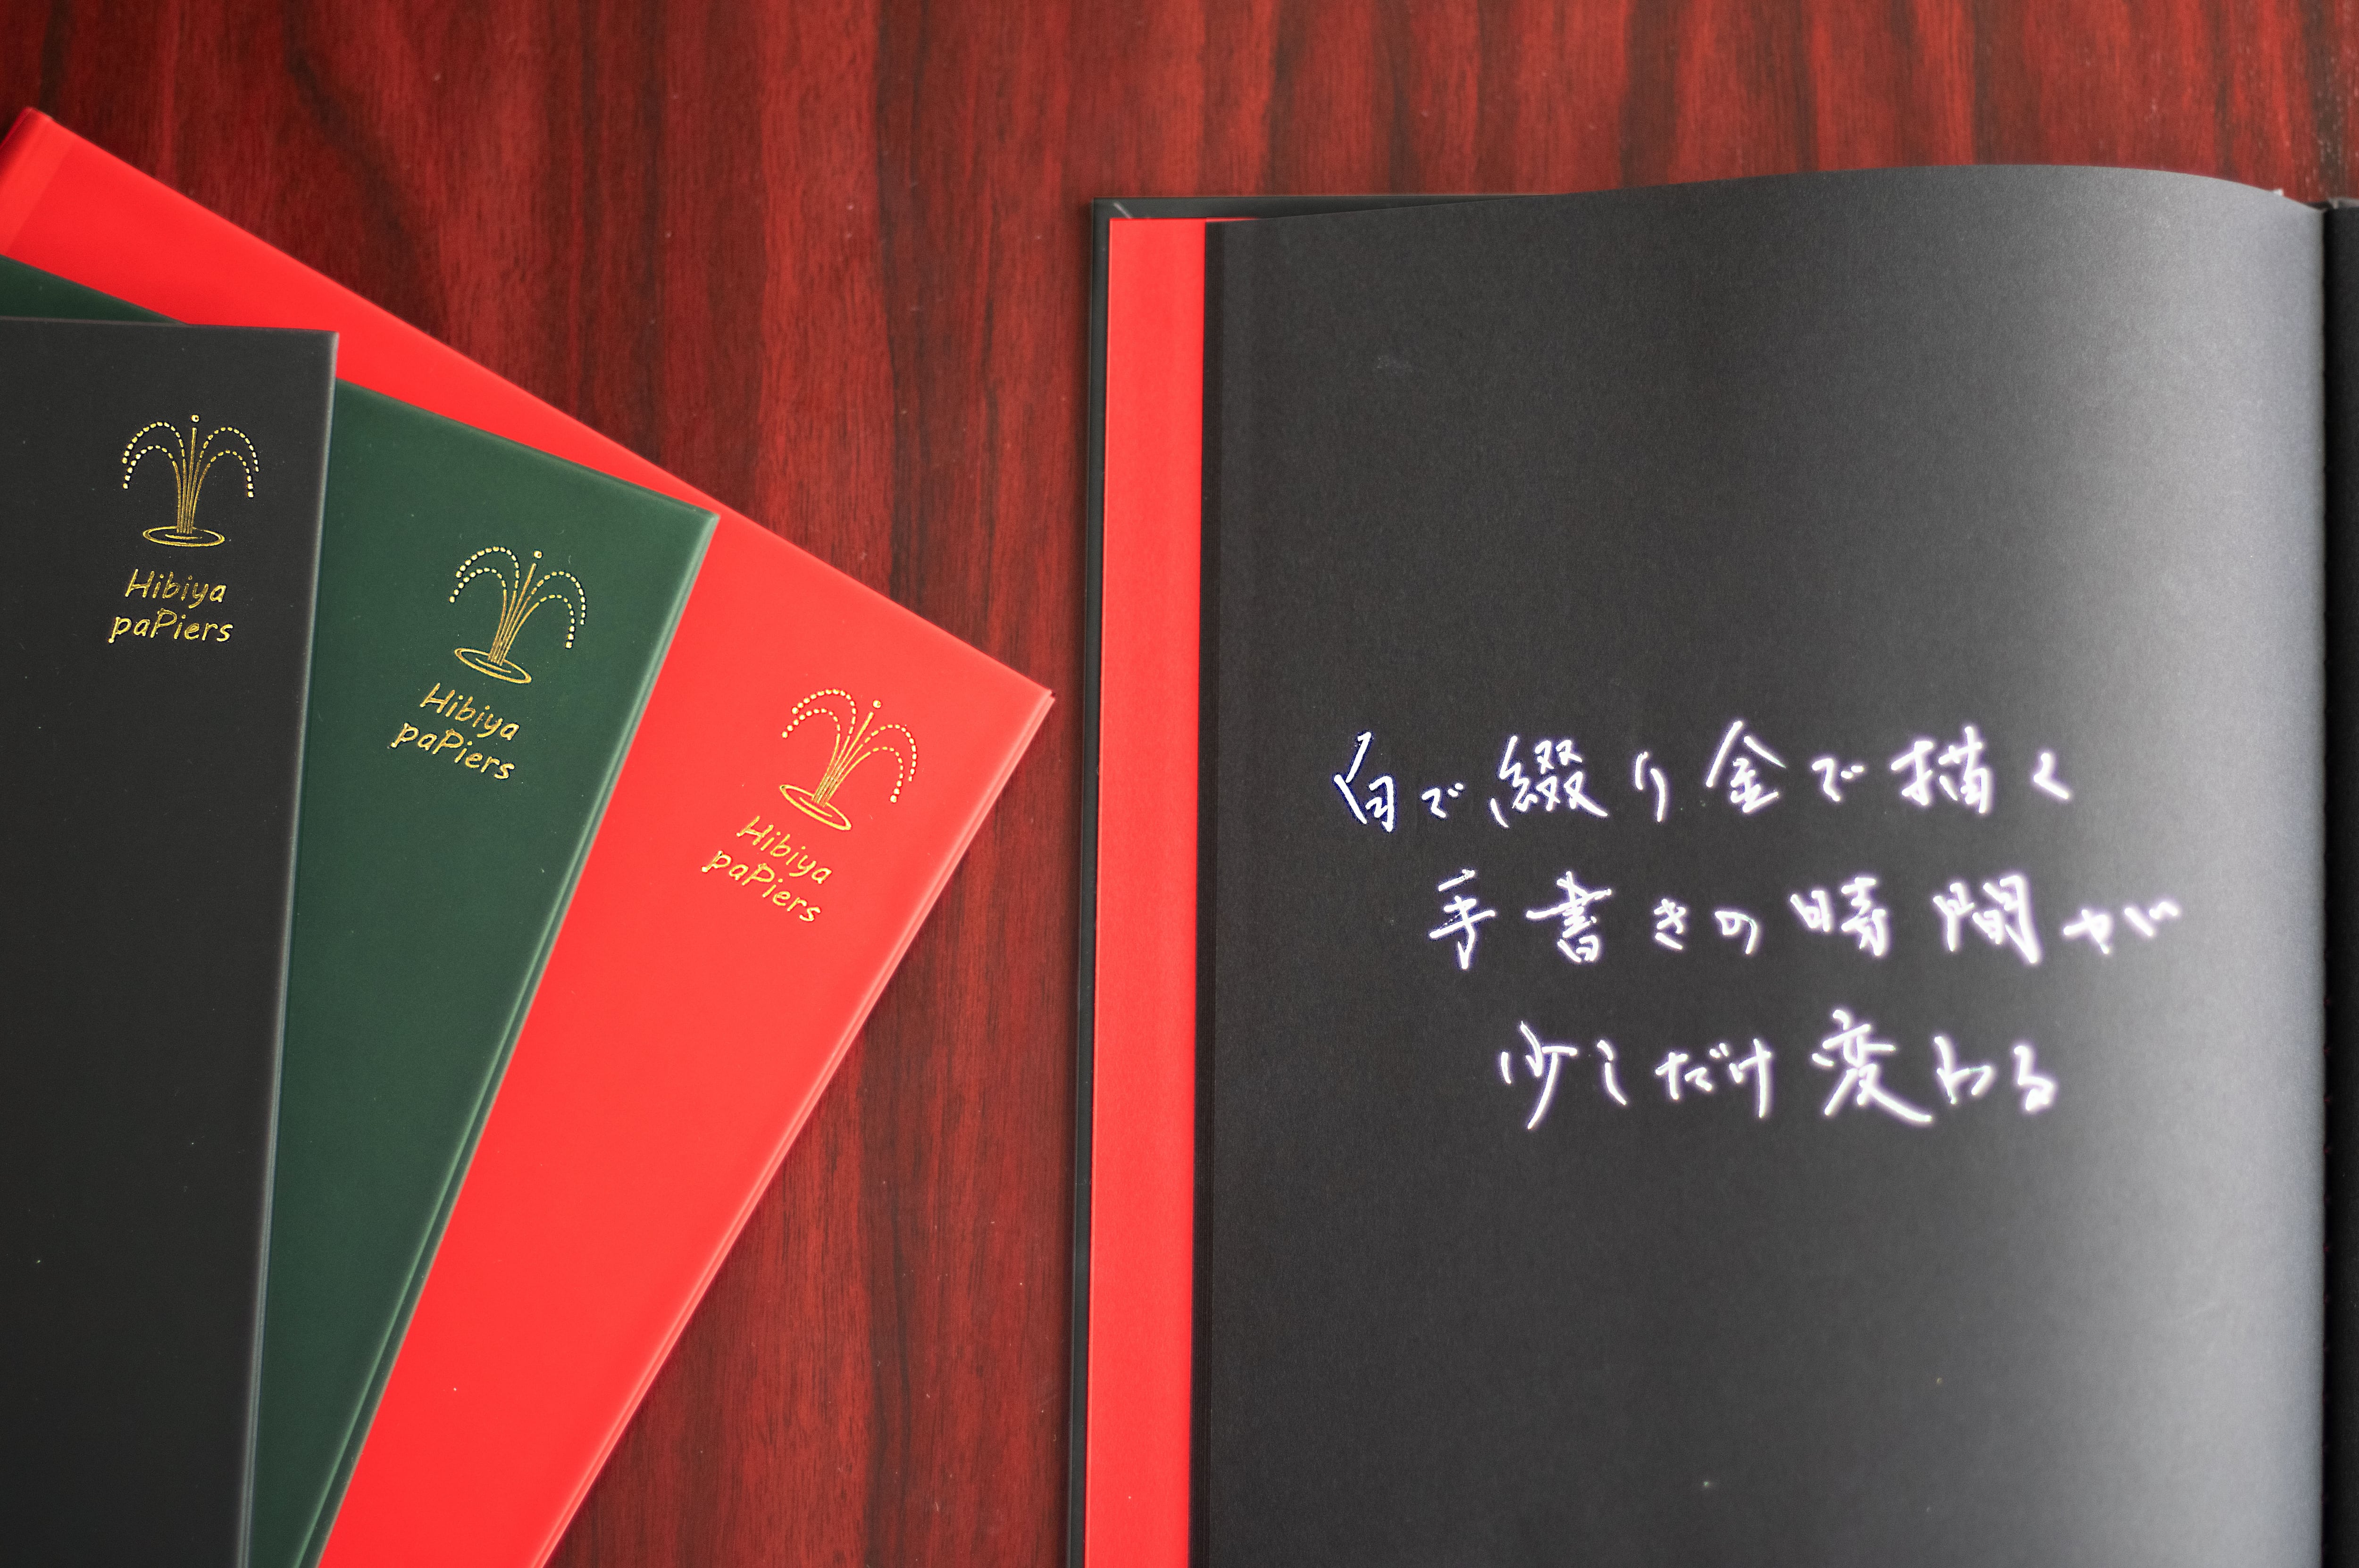 Hibiya
paPiers
Hibiya
paPiers
Hibiya
paPiers
白で綴り金で描く
手書きの時間が
少しだけ変わる